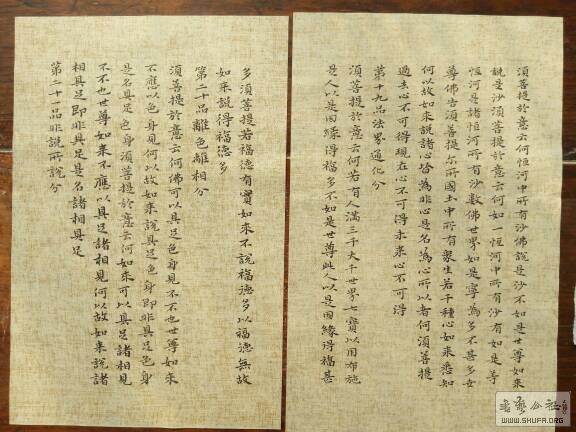 須菩提於意云何恒中所有沙佛說是沙不如是世尊如來
說是沙須菩提於意云何如一恒河中所有沙有如是等
恒河是諸恒河所有沙數佛世界如是寧為多不甚多世
尊佛告須菩提尔所國土中所有衆生若干種心如來悉知
何以故如來說諸心皆為非心是名為心所以者何須菩提
過去心不可得現在心不可得未來心不可得
第十九品法界通化分
須菩提於意云何若有人滿三千大千世界七寶以用布施
是人以是因緣得福多不如是世尊此人以是因緣得福甚
多須菩提若福德有實如來不說福德多以福德無故
如來說得福德多
第二十品離色離相分
須菩提於意云何佛可以具足色身見不不也世尊如來
不應以色身見何以故如來說具足色身即非具足色身
是名具足色身須菩提於意云何如來可以具足諸相見
不不也世尊如來不應以具足諸相見何以故如來說諸
相具足即非具足是名諸相具足
第二十一品非說所說分
WWW.SHUFA.ORG